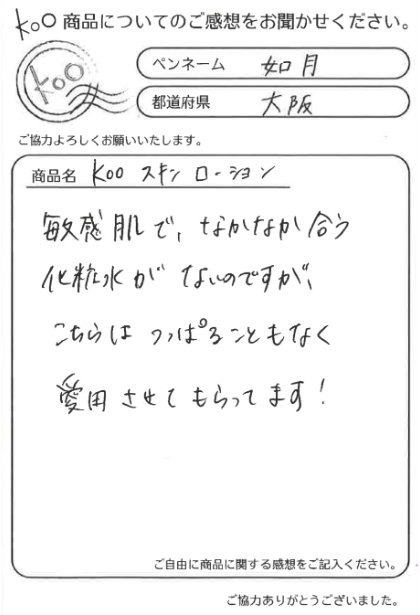 koo 商品についてのご感想をお聞かせください。
koo
ペンネーム 如月
都道府県 大阪
ご協力よろしくお願いいたします。
商品名 koo スキンローション
敏感肌で、なかなか合う
化粧水がないのですが、
こちらはつっぱることもなく
愛用させてもらってます!
ご自由に商品に関する感想をご記入ください。
ご協力ありがとうございました。